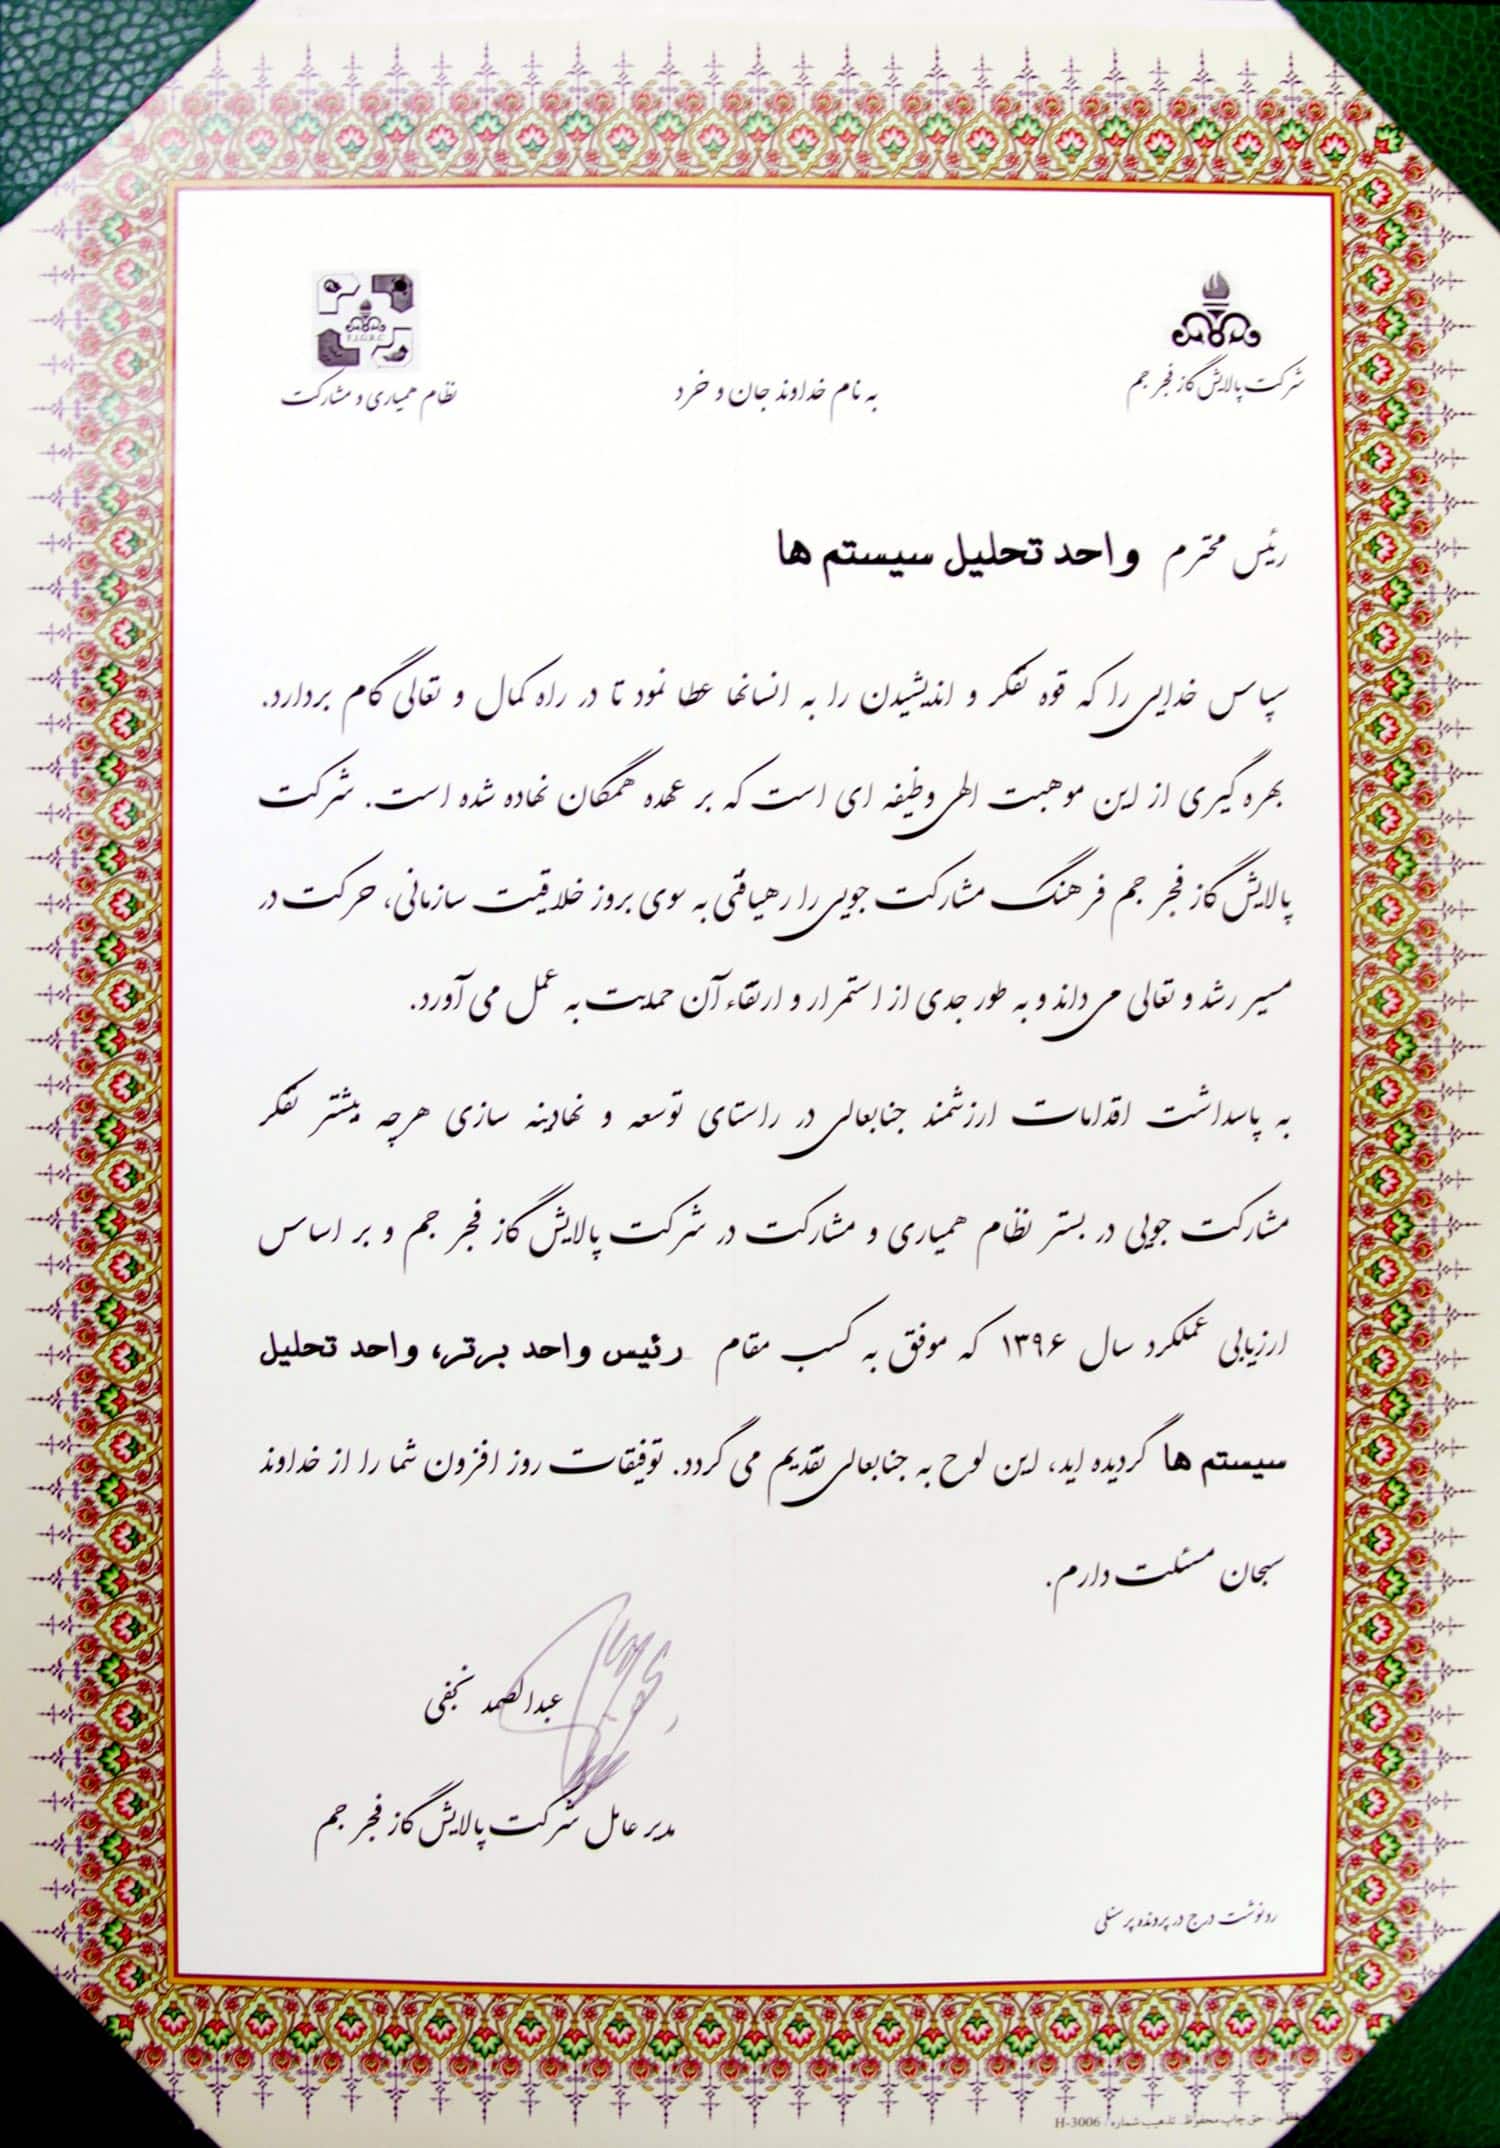 شرکت پالایش گاز فجر جم
به نام خداوند جان و خرد
F.J.G.R.C
نظام همیاری و مشارکت
رئیس محترم واحد تحلیل سیستم ها
سپاس خدایی را که قوه تفکر و اندیشیدن را به انسانها عطا نمود تا در راه کمال و تعالی گام بردارد.
بهره گیری از این موهبت الهی وظیفه ای است که بر عهده همگان نهاده شده است. شرکت
پالایش گاز فجر جم فرهنگ مشارکت جویی را رهیافتی به سوی بروز خلاقیت سازمانی، حرکت در
مسیر رشد و تعالی می داند و به طور جدی از استمرار و ارتقاء آن حمایت به عمل می آورد.
به پاسداشت اقدامات ارزشمند جنابعالی در راستای توسعه و نهادینه سازی هرچه بیشتر تفکر
مشارکت جویی در بستر نظام همیاری و مشارکت در شرکت پالایش گاز فجر جم و بر اساس
ارزیابی عملکرد سال ۱۳۹۶ که موفق به کسب مقام رئیس واحد برتر، واحد تحلیل
سیستم ها گردیده اید، این لوح به جنابعالی تقدیم می گردد. توفیقات روز افزون شما را از خداوند
سبحان مسئلت دارم.
عبدالصمد نجفی
مدیر عامل شرکت پالایش گاز فجر جم
رونوشت درج در پرونده پرسنلی
حق چاپ محفوظ تذهیب شماره H-3006